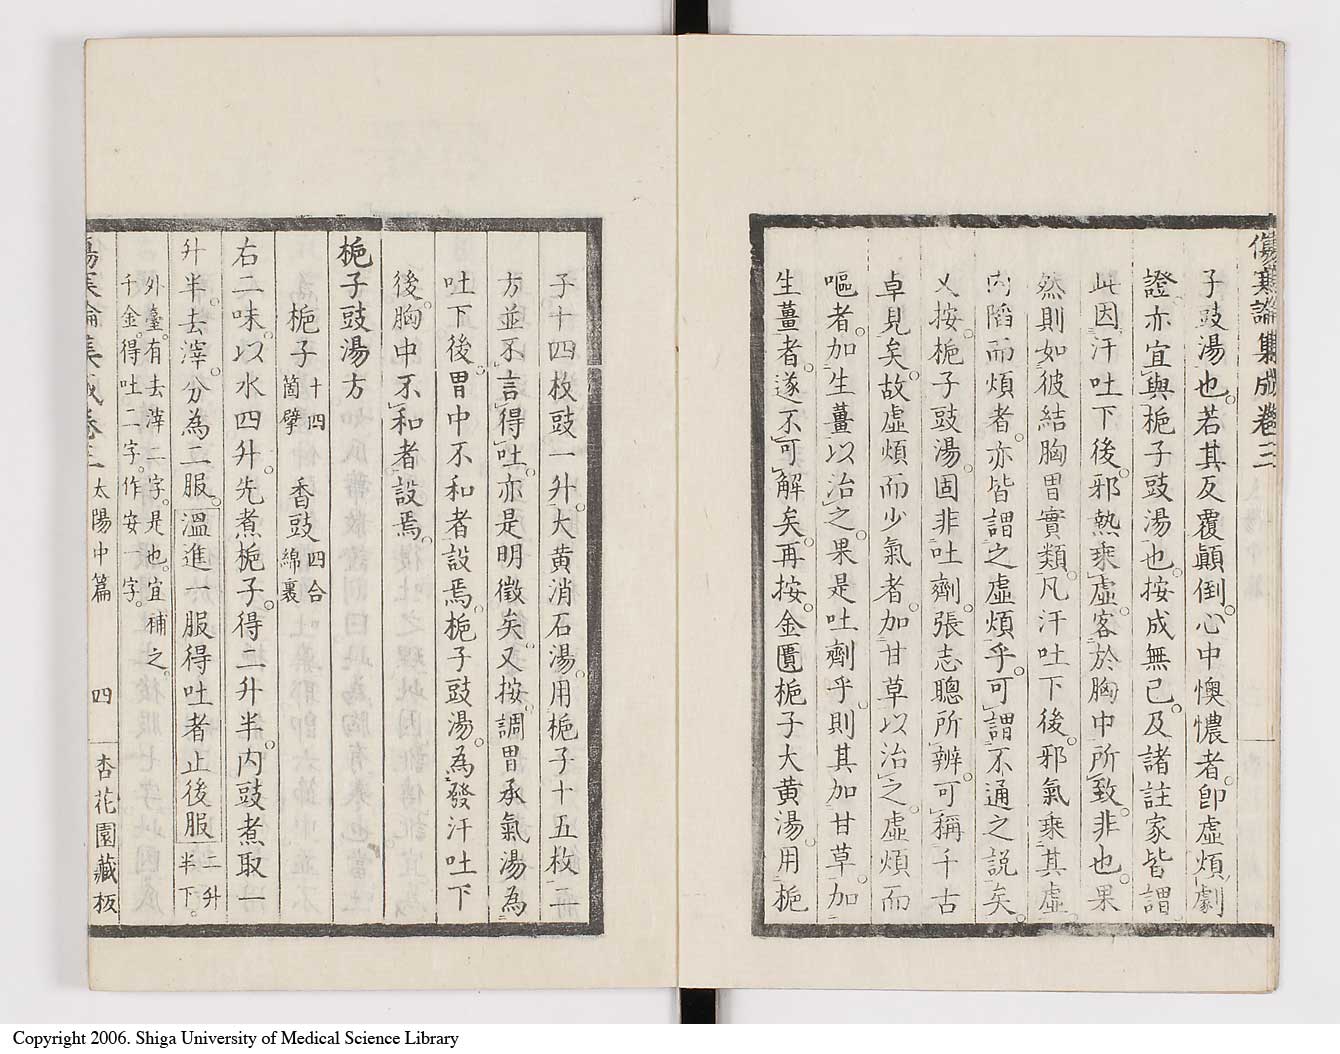 傷寒論集成卷三
子豉湯也。若其反覆顚倒。心中懊憹者。卽虛煩劇
證。亦宜與梔子豉湯也。按成無己。及諸註家皆謂
此因汗吐下後。邪熱乘虛。客於胸中所致。非也。果
然則如彼結胸胃實類。凡汗吐下後。邪氣乘其虛
内陷而煩者。亦皆謂之虛煩乎。可謂不通之說矣。
又按。梔子豉湯。固非吐劑。張志聰所辨。可稱千古
卓見矣。故虛煩而少氣者。加甘草以治之。虛煩而
嘔者。加生薑以治之。果是吐劑乎。則其加甘草。加
生薑者。遂不可解矣。再按。金匱梔子大黃湯。用梔
子十四枚豉一升。大黃消石湯。用梔子十五枚。二
方並不言得吐。亦是明徵矣。又按。調胃承氣湯。為
吐下後。胃中不和者設焉。梔子豉湯。為發汗吐下
後。胸中不和者。設焉。
梔子豉湯方
梔子十四箇擘 香豉四合綿裹
右二味。以水四升。先煮梔子。得二升半。内豉煮取一
升半。去滓。分為二服。溫進一服得吐者止後服二升半下。
外臺。有去滓二字。是也。宜補之。
千金。得吐二字。作安一字。
傷寒論集成卷三 太陽中篇 四 杏花園藏板
Copyright 2006. Shiga University of Medical Science Library